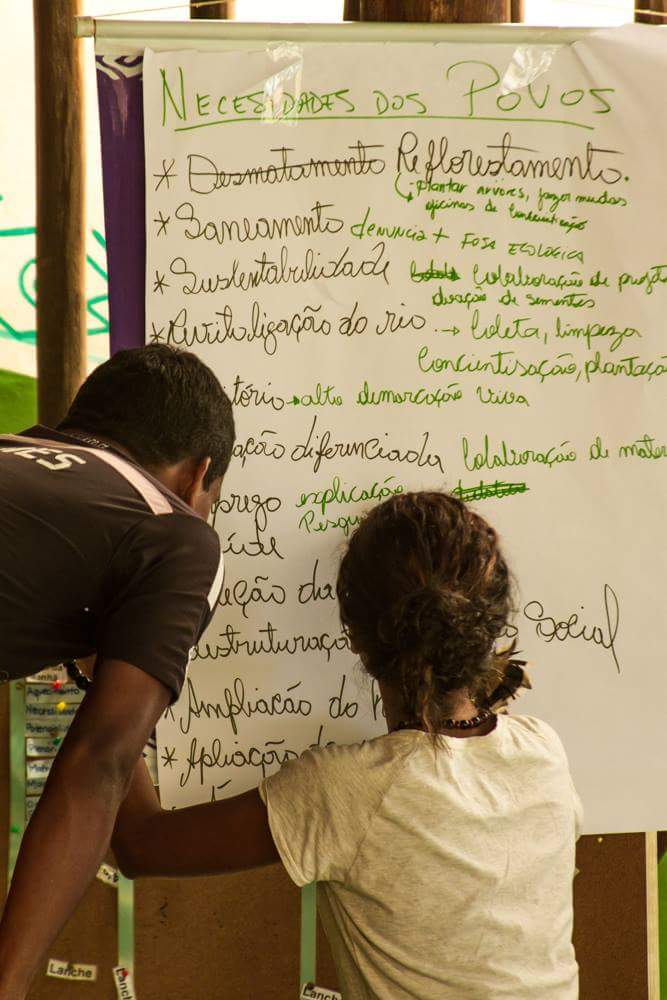 NECESIDADES DOS POVOS
* Desmatamento Reflorestamento.
plantar arvores, fazer mudas
oficinas de
* Saneamento denuncia + FOSA ECOLÓGICA
* Sustentabilidade Colaboração de projet
doação de sementes
* do rio. → Coleta, limpeza
Concientisação, plantaça
itório → alto demarcação viva
ação diferenciada Colaboração de mater
prego explicação
Pesqu
úde
eção da
estruturaçã o Social
* Ampliacão do
* Apliação d
ES
Lanche
Lanche
Lanche